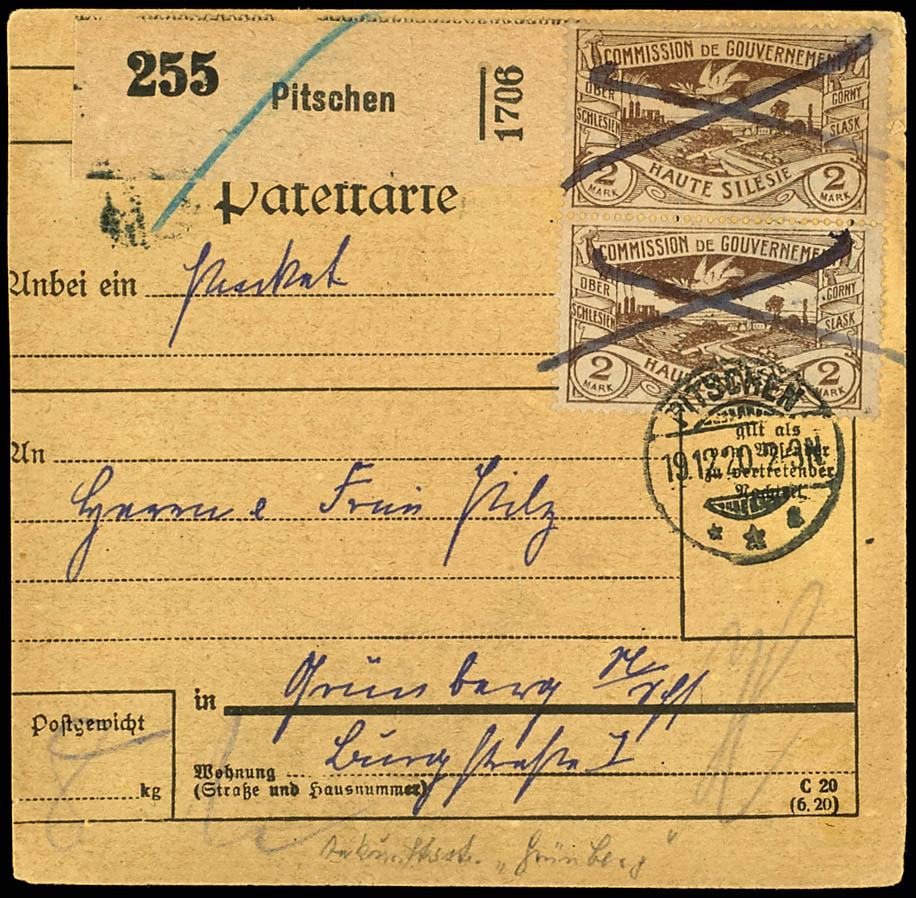 255 Pitschen 1706
COMMISSION DE GOUVERNEMENT
OBER SCHLESIEN GORNY SLASK
2 MARK HAUTE SILESIE 2 MARK
Paketkarte
COMMISSION DE GOUVERNEMENT
OBER SCHLESIEN GORNY SLASK
2 MARK HAUTE 2 MARK
Anbei ein Packet
PITSCHEN
19.12.20.
gilt als
zu vertretender
An
Pilz
in Grünberg N/Schl
Burgstraße
Postgewicht
kg
Wohnung
(Straße und Hausnummer)
C 20
(6.20)
Ankunftsst. „Grünberg"